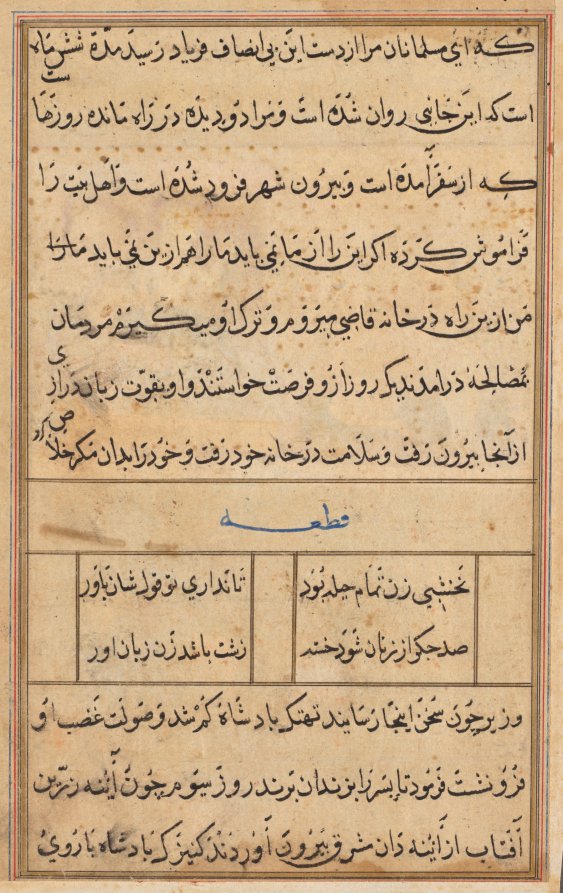 که ای مسلمانان مرا از دست این بی انصاف فریاد رسید مدة شش ماه
است که این جانبی روان شده است و مرا دو دیده در راه مانده روزها
که از سفر آمده است و بیرون شهر فرود شده است و اهل بیت را
فراموش کرده اکر این را از ما نمی باید ما را هم ازین نمی باید
من ازین راه در خانه قاضی میروم و ترک او میکیرم مردمان
بمصالحه درامدند یک روز ازو فرصت خواستند و او بقوت زبان درازی
از آنجا بیرون رفت و سلامت در خانه خود رفت و خود را بدان مکر خلاص کرد
قطعه
نخشبی زن تمام حیله بود
تا نداری تو قول شان باور
صد جکر از زنان شود خسته
زشت باشد زن زبان اور
وزیر چون سخن اینجا رسانید تهتک پادشاه کم شد و صولت غضب او
فرو نشست فرمود تا پسر را بزندان برند روز سوم چون آینه زرین
آفتاب از آینه دان مشرق بیرون آوردند کنیزک با دشاه با روی